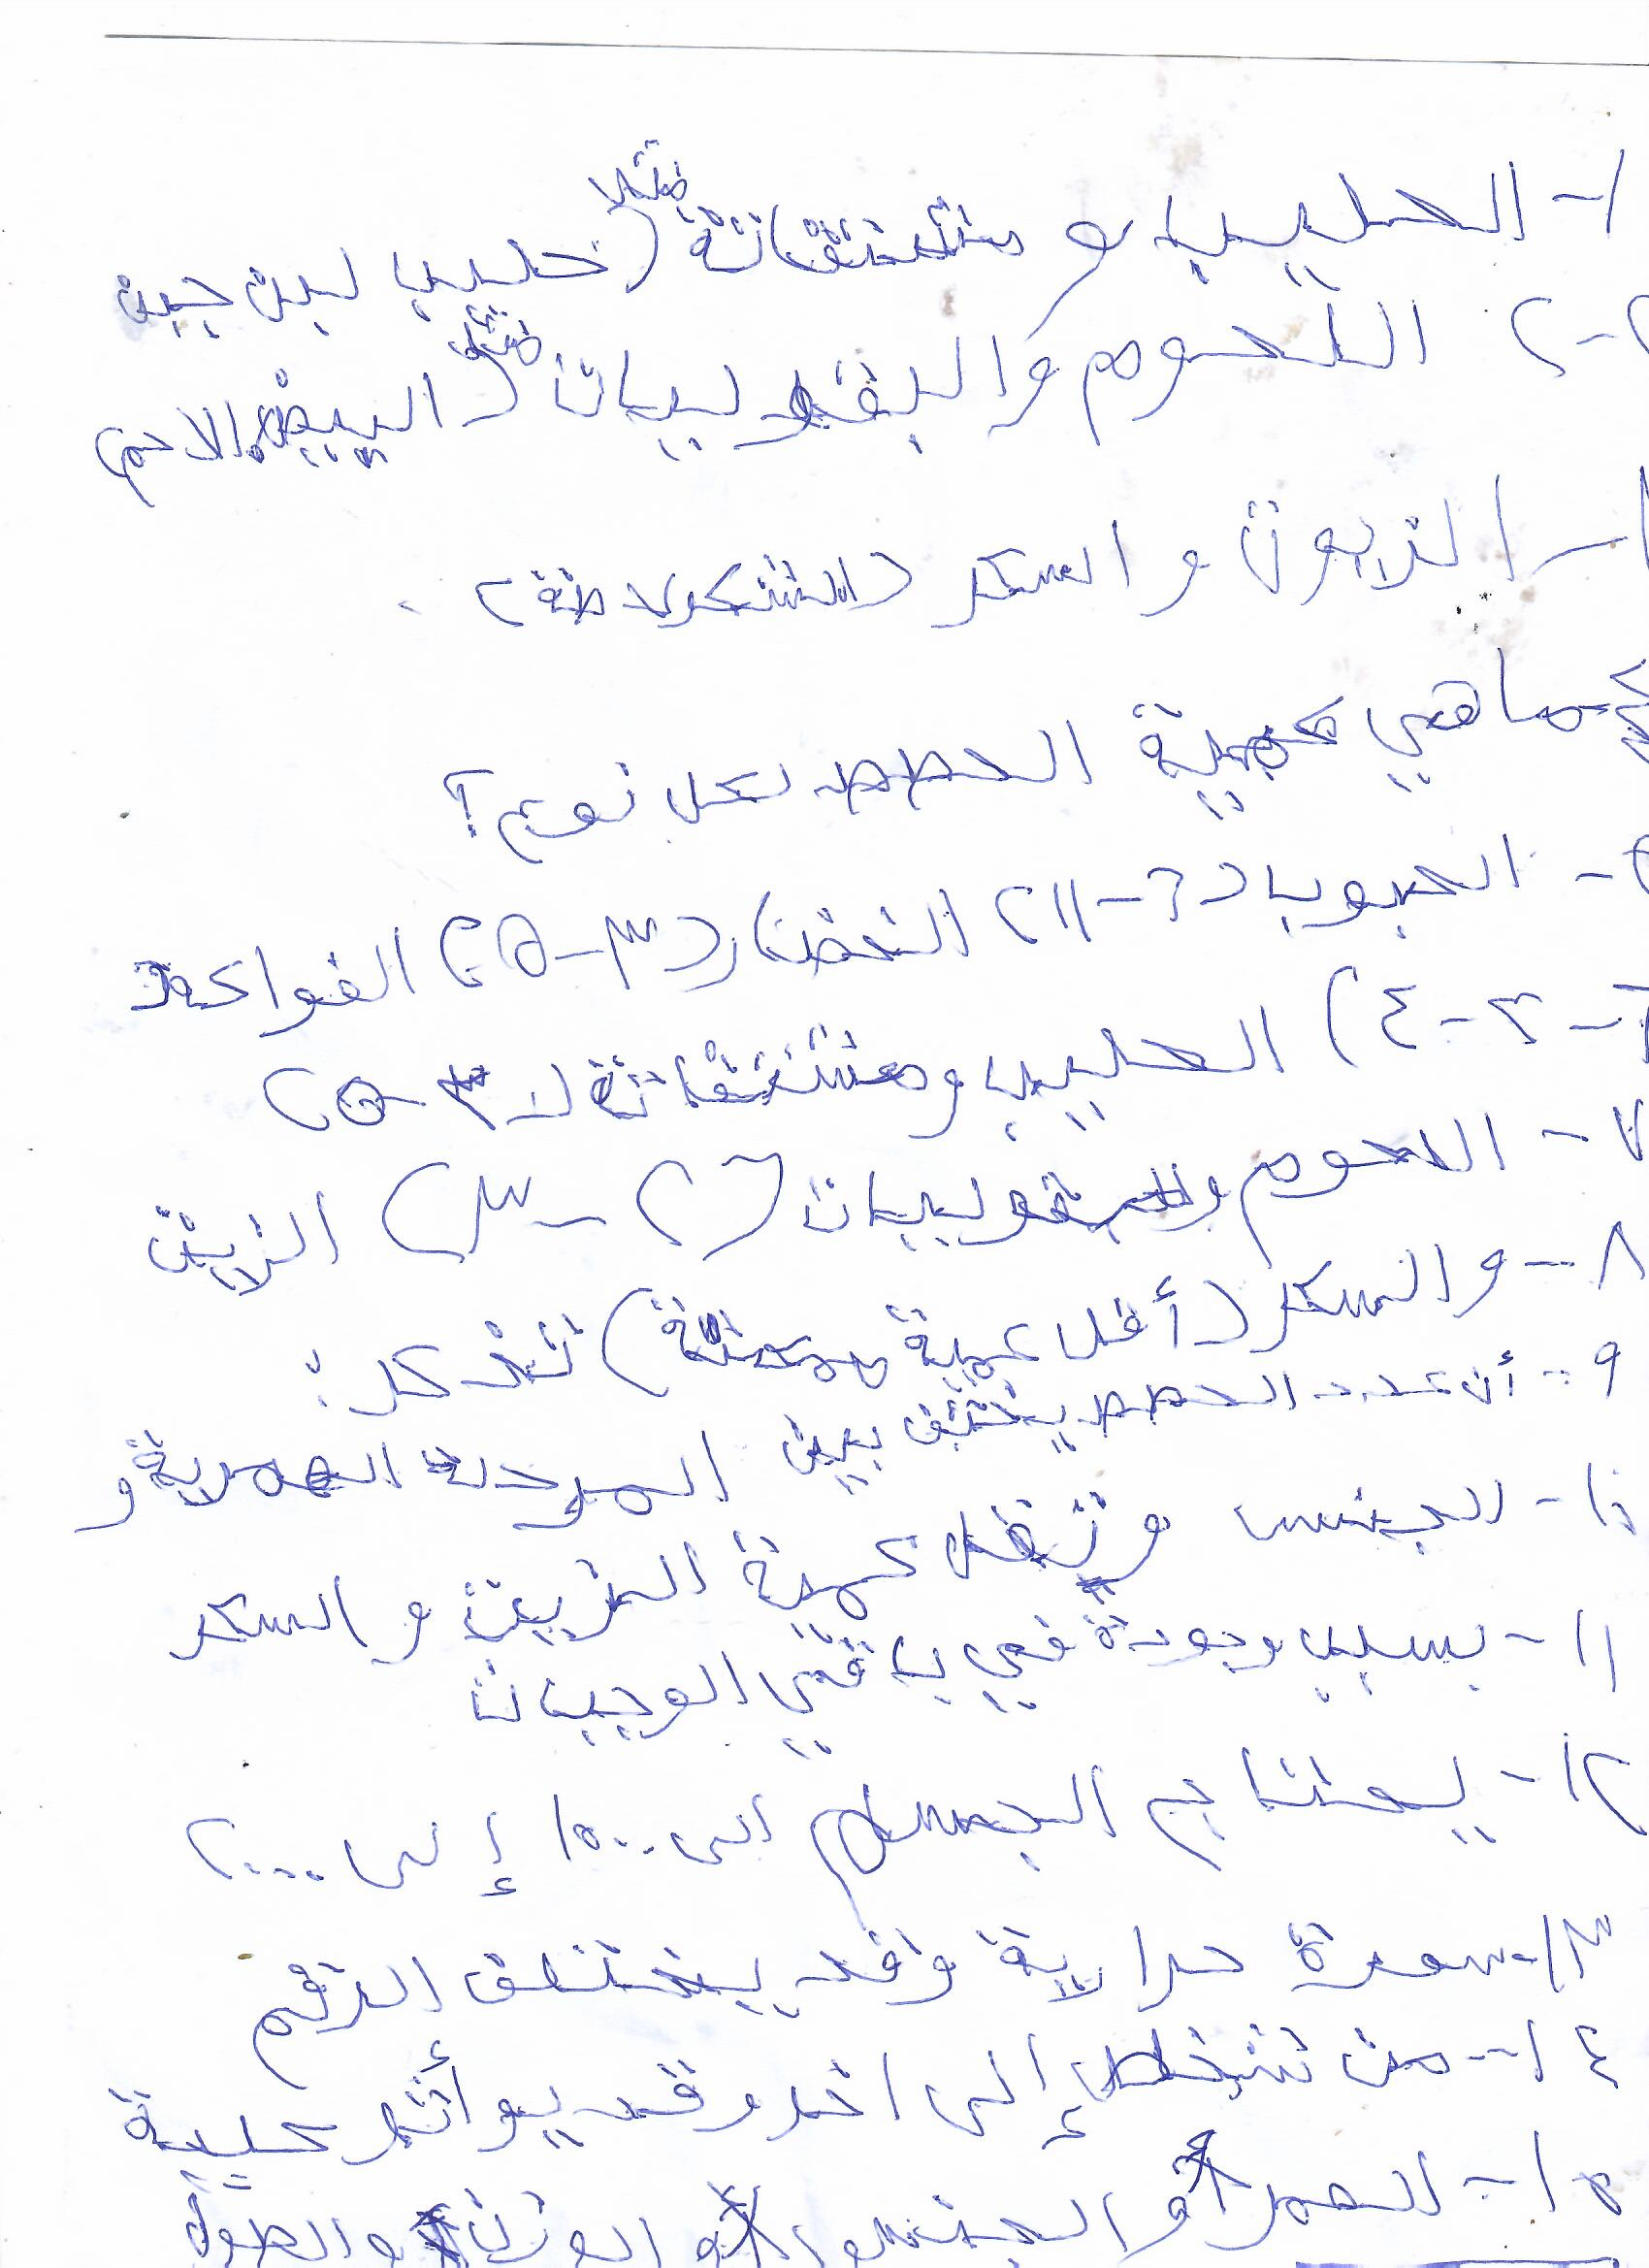 ١- الحليب و مشتقاتة (حليب لبن جبن
مثلا
٢-٢ اللحوم والبقوليبات (البيض الاحمر
مثل
الزيوت و السكر (الشكولاطة)
ماهي كمية الحصص لكل نوع؟
- الحبوب (٦-١١) الخضار (٣-٥) الفواكه
٦- ٢-٤) الحليب ومشتقاتة (٣-٥)
٧- اللحوم والبقوليبات (٢-٣) الزيت
٨- و السكر (أقل كمية ممكنة) تذكر:
٩- أن عدد الحصص يختلف بين المرحلة العمرية و
١٠- الجنس وتقل كمية الزيت و السكر
١١- بسبب وجودة في باقي الوجبات
١٢- يحتاج الجسم الى ١٥٠٠ إلى ٢٠٠٠
١٣- سعرة حرارية وقد يختلف الرقم
١٤- من شخص إلى اخر وقد يوأثر علية
١٥- العمر و الجنس و الوزن و الطول